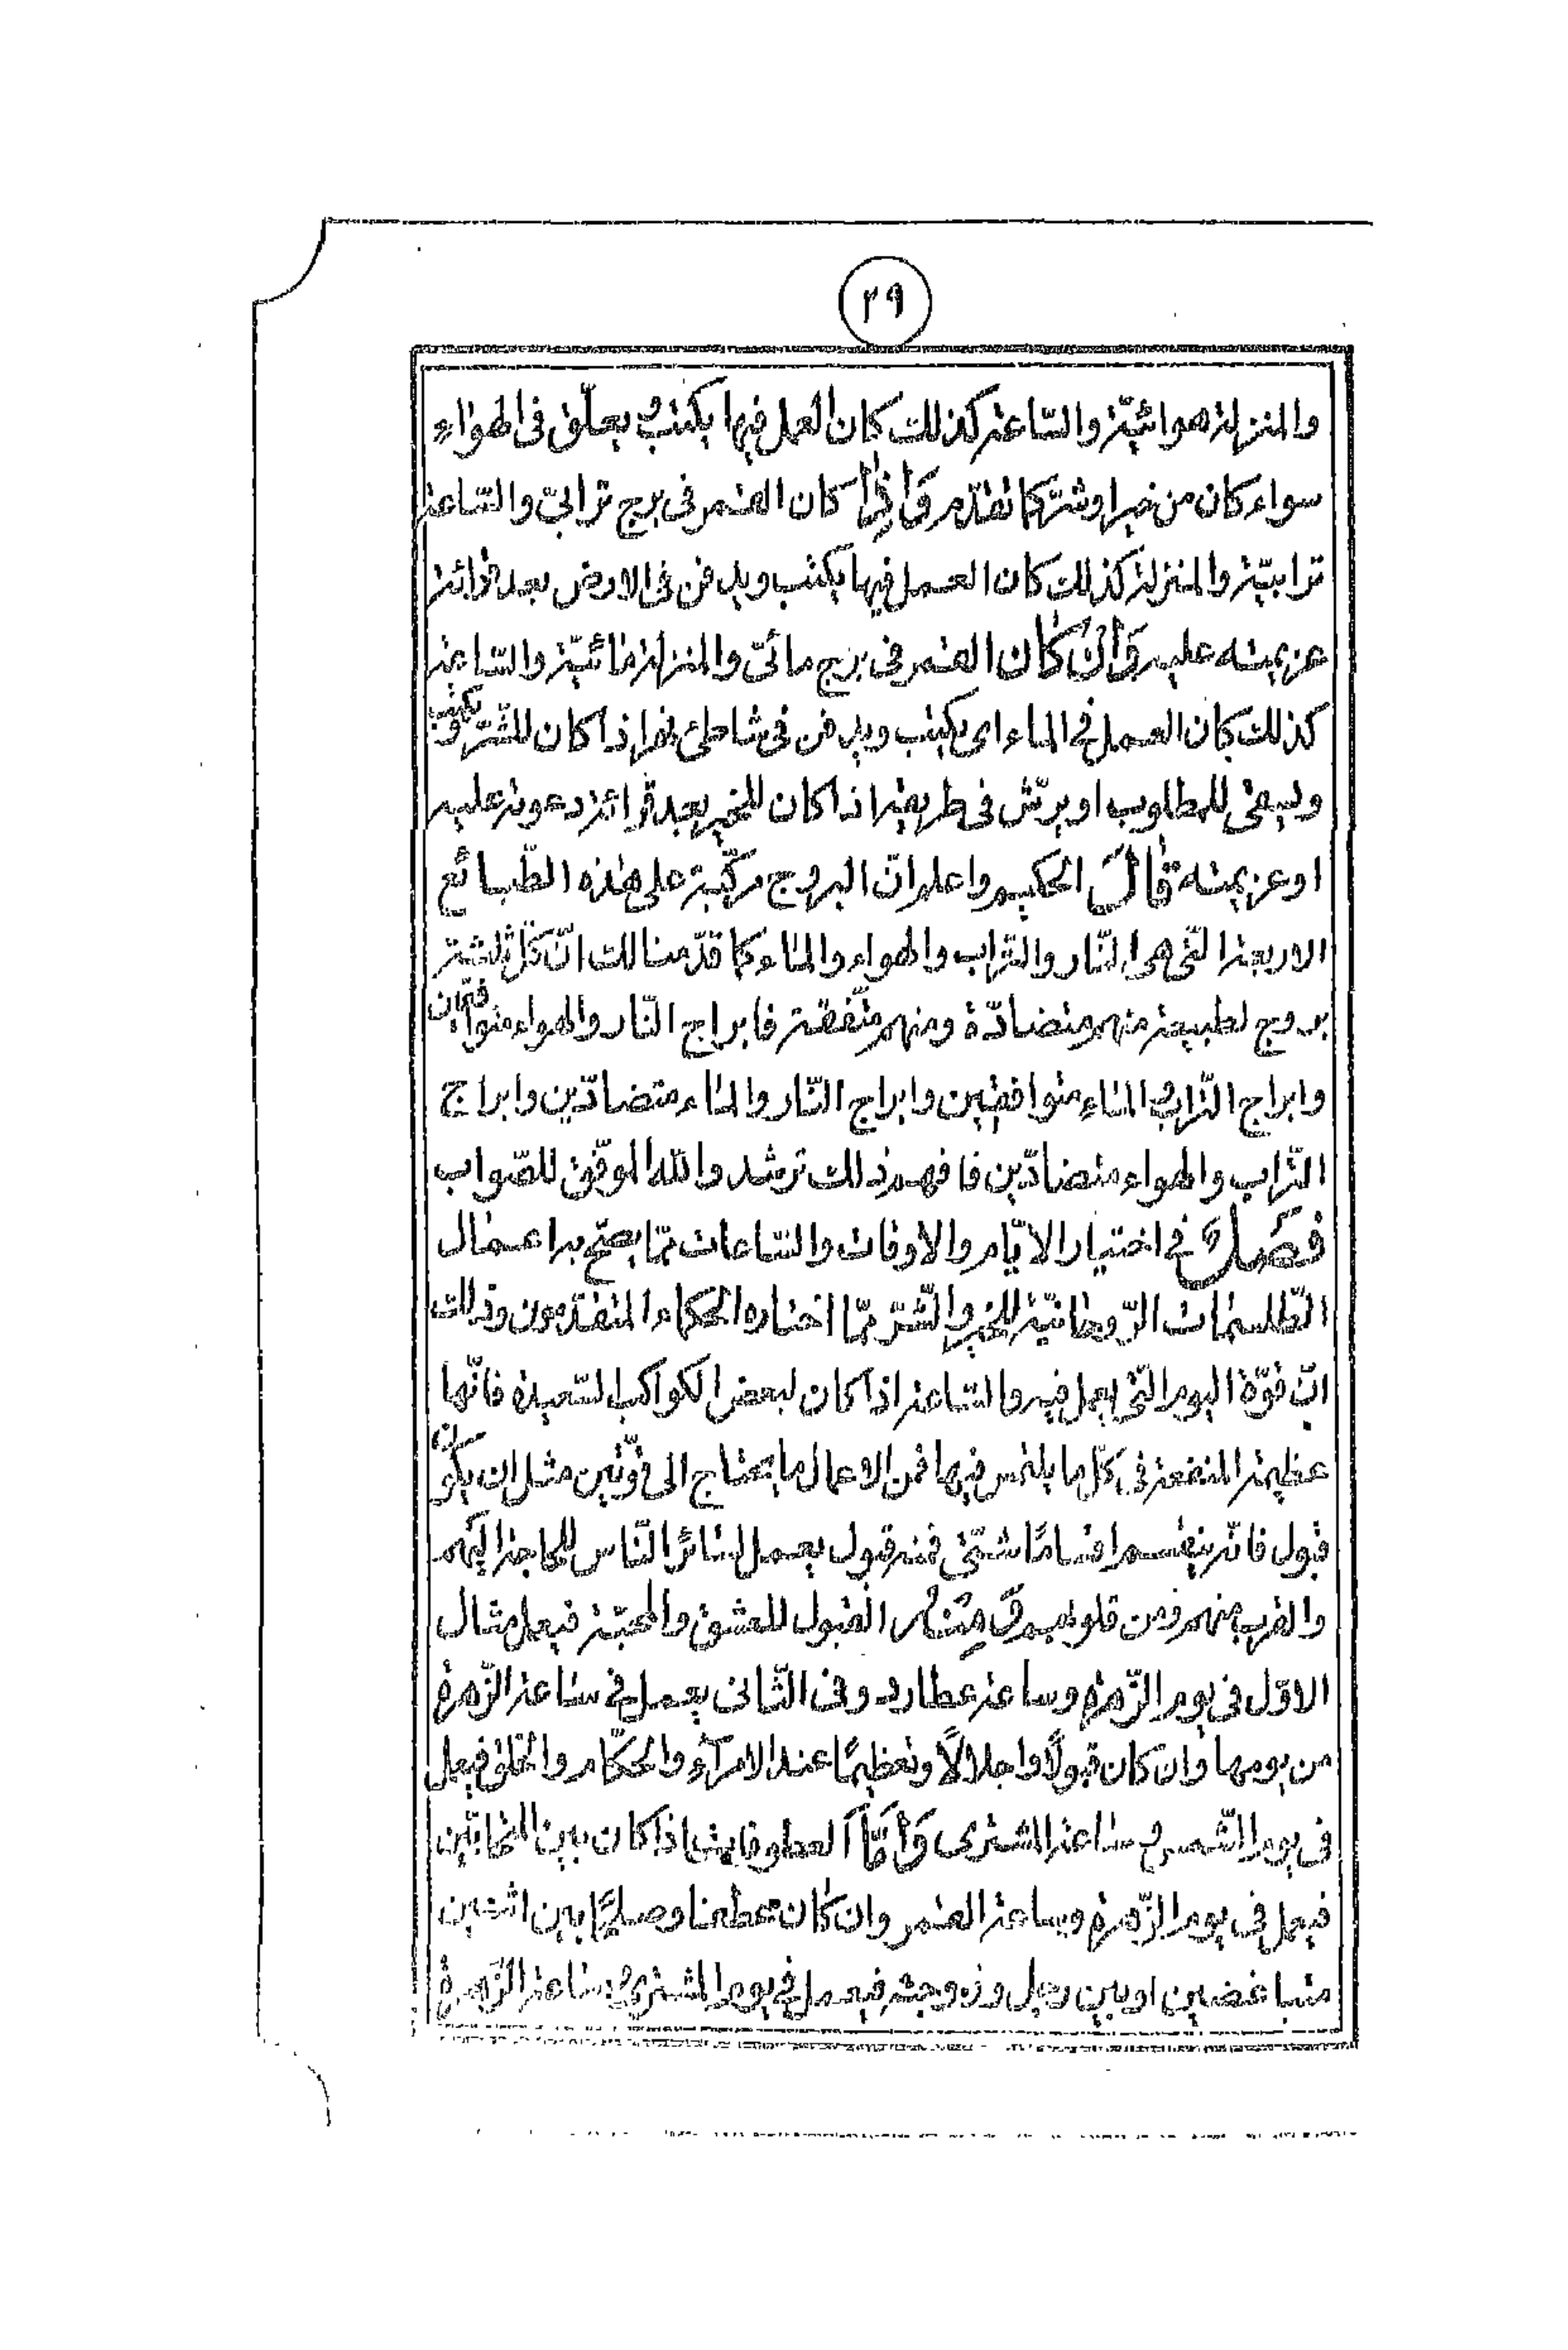 ٢٩
والمنزلة هوائيّة والسّاعة كذلك كان العمل فيها يكتب و يعلّق فى الهواء
سواء كان من خير او شرّ كما تقدّم وَاِذٰا كان القمر فى برج ترابىّ والسّاعة
ترابيّة والمنزلة كذلك كان العمل فيها يكتب ويدفن فى الارض بعد قرائة
عزيمته عليه وَاِنْ كٰان القمر فى برج مائىّ والمنزلة مٰائيّة والسّاعة
كذلك كان العمل فى الماء اى يكتب ويدفن فى شاطئ نهر اذا كان للشّرّ و يكتب
ويسقى للمطلوب او يرشّ فى طريقه اذا كان للخير بعد قرائة دعوته عليه
او عزيمته قٰالَ الحكيم واعلم انّ البروج مركّبة على هٰذه الطّبائع
الاربعة الّتى هى النّار والتّراب والهواء والمٰاء كما قدّمنا لك انّ كلّ ثلثة
بروج لطبيعة منهم متضادّة ومنهم متّفقة فابراج النّار والهواء متوافقان
وابراج التّراب و المٰاء متوافقين وابراج النّار والمٰاء متضادّين وابراج
التّراب والهواء متضادّين فافهم ذلك ترشد والله الموفّق للصّواب
فَصْلٌ فى اختيار الايّام والاوقات والسّاعات ممّا يصحّ به اعمٰال
الطّلسمٰات الرّوحٰانيّة للخير والشّرّ ممّا اختاره الحكماء المتقدّمون وذلك
انّ قوّة اليوم الّتى يعمل فيه والسّاعة اذا كان لبعض الكواكب السّعيدة فانّها
عظيمة المنفعة فى كلّ ما يلتمس فيها فمن الاعمال ما يحتاج الى قوّتين مثل ان يكون
قبول فانّه ينقسم اقسامًا شتّى فمنه قبول يعمل لسٰائر النّاس للحاجة اليهم
والقرب منهم ومن قلوبهم وَمِنْهُ القبول للعشق والمحبّة فيعمل مثال
الاوّل فى يوم الزّهرة وساعة عطارد وفى الثّانى يعمل فى سٰاعة الزّهرة
من يومها وان كان قبولًا واجلالًا وتعظيمًا عند الامرآء والحكّام والخلق فيعمل
فى يوم الشّمس و سٰاعة المشترى وَاَمَّا العطوفٰات اذا كان بين المتحابّين
فيعمل فى يوم الزّهرة وساعة القمر وان كٰان عطفا وصلحًا بين اثنين
متباغضين او بين رجل وزوجته فيعمل فى يوم المشترى و سٰاعة الزّهرة